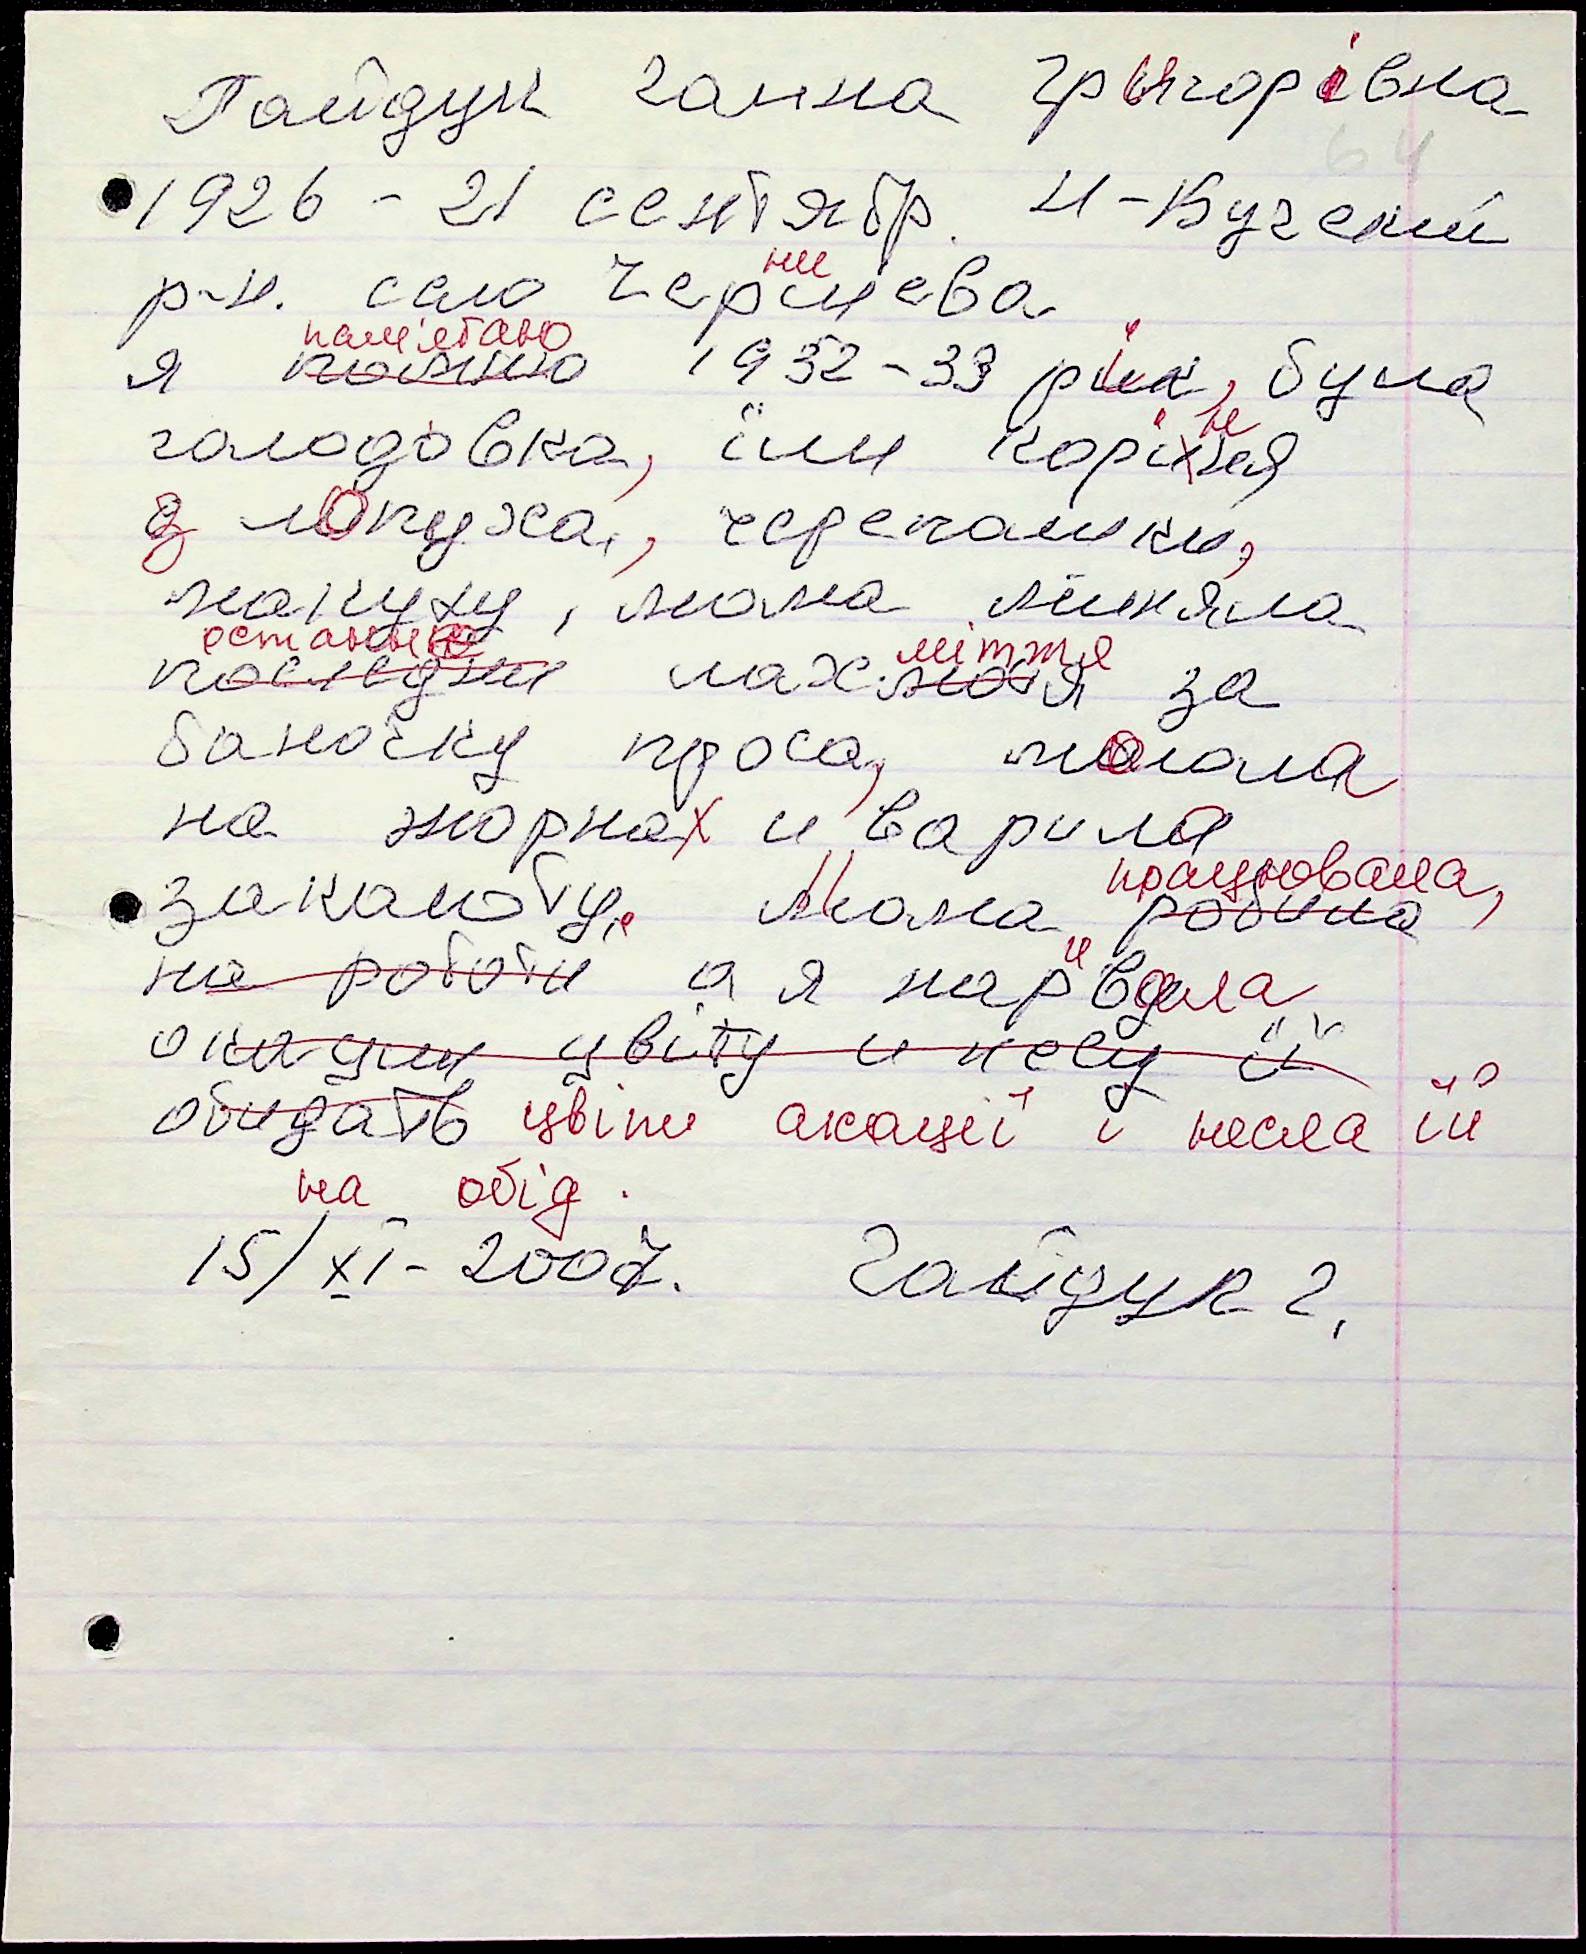 Гайдук Ганна Григорівна
64
1926 - 21 сентябр. Н-Бугский
ни
р-н. село Черинева
памʼятаю
я помню 1932-33 рік, була
не
голодовка, їли коріня
з лопуха, черепашки,
макуху, мама міняла
останнє
последни лахмотя за
міття
баночку проса, молола
на жорнах и варила
закалоту. Мама робила
працювала,
на роботи а я нарвала
и
окации цвіту и несу її
обидать цвіту акації і несла їй
на обід.
15/XI-2007. Гайдук Г.